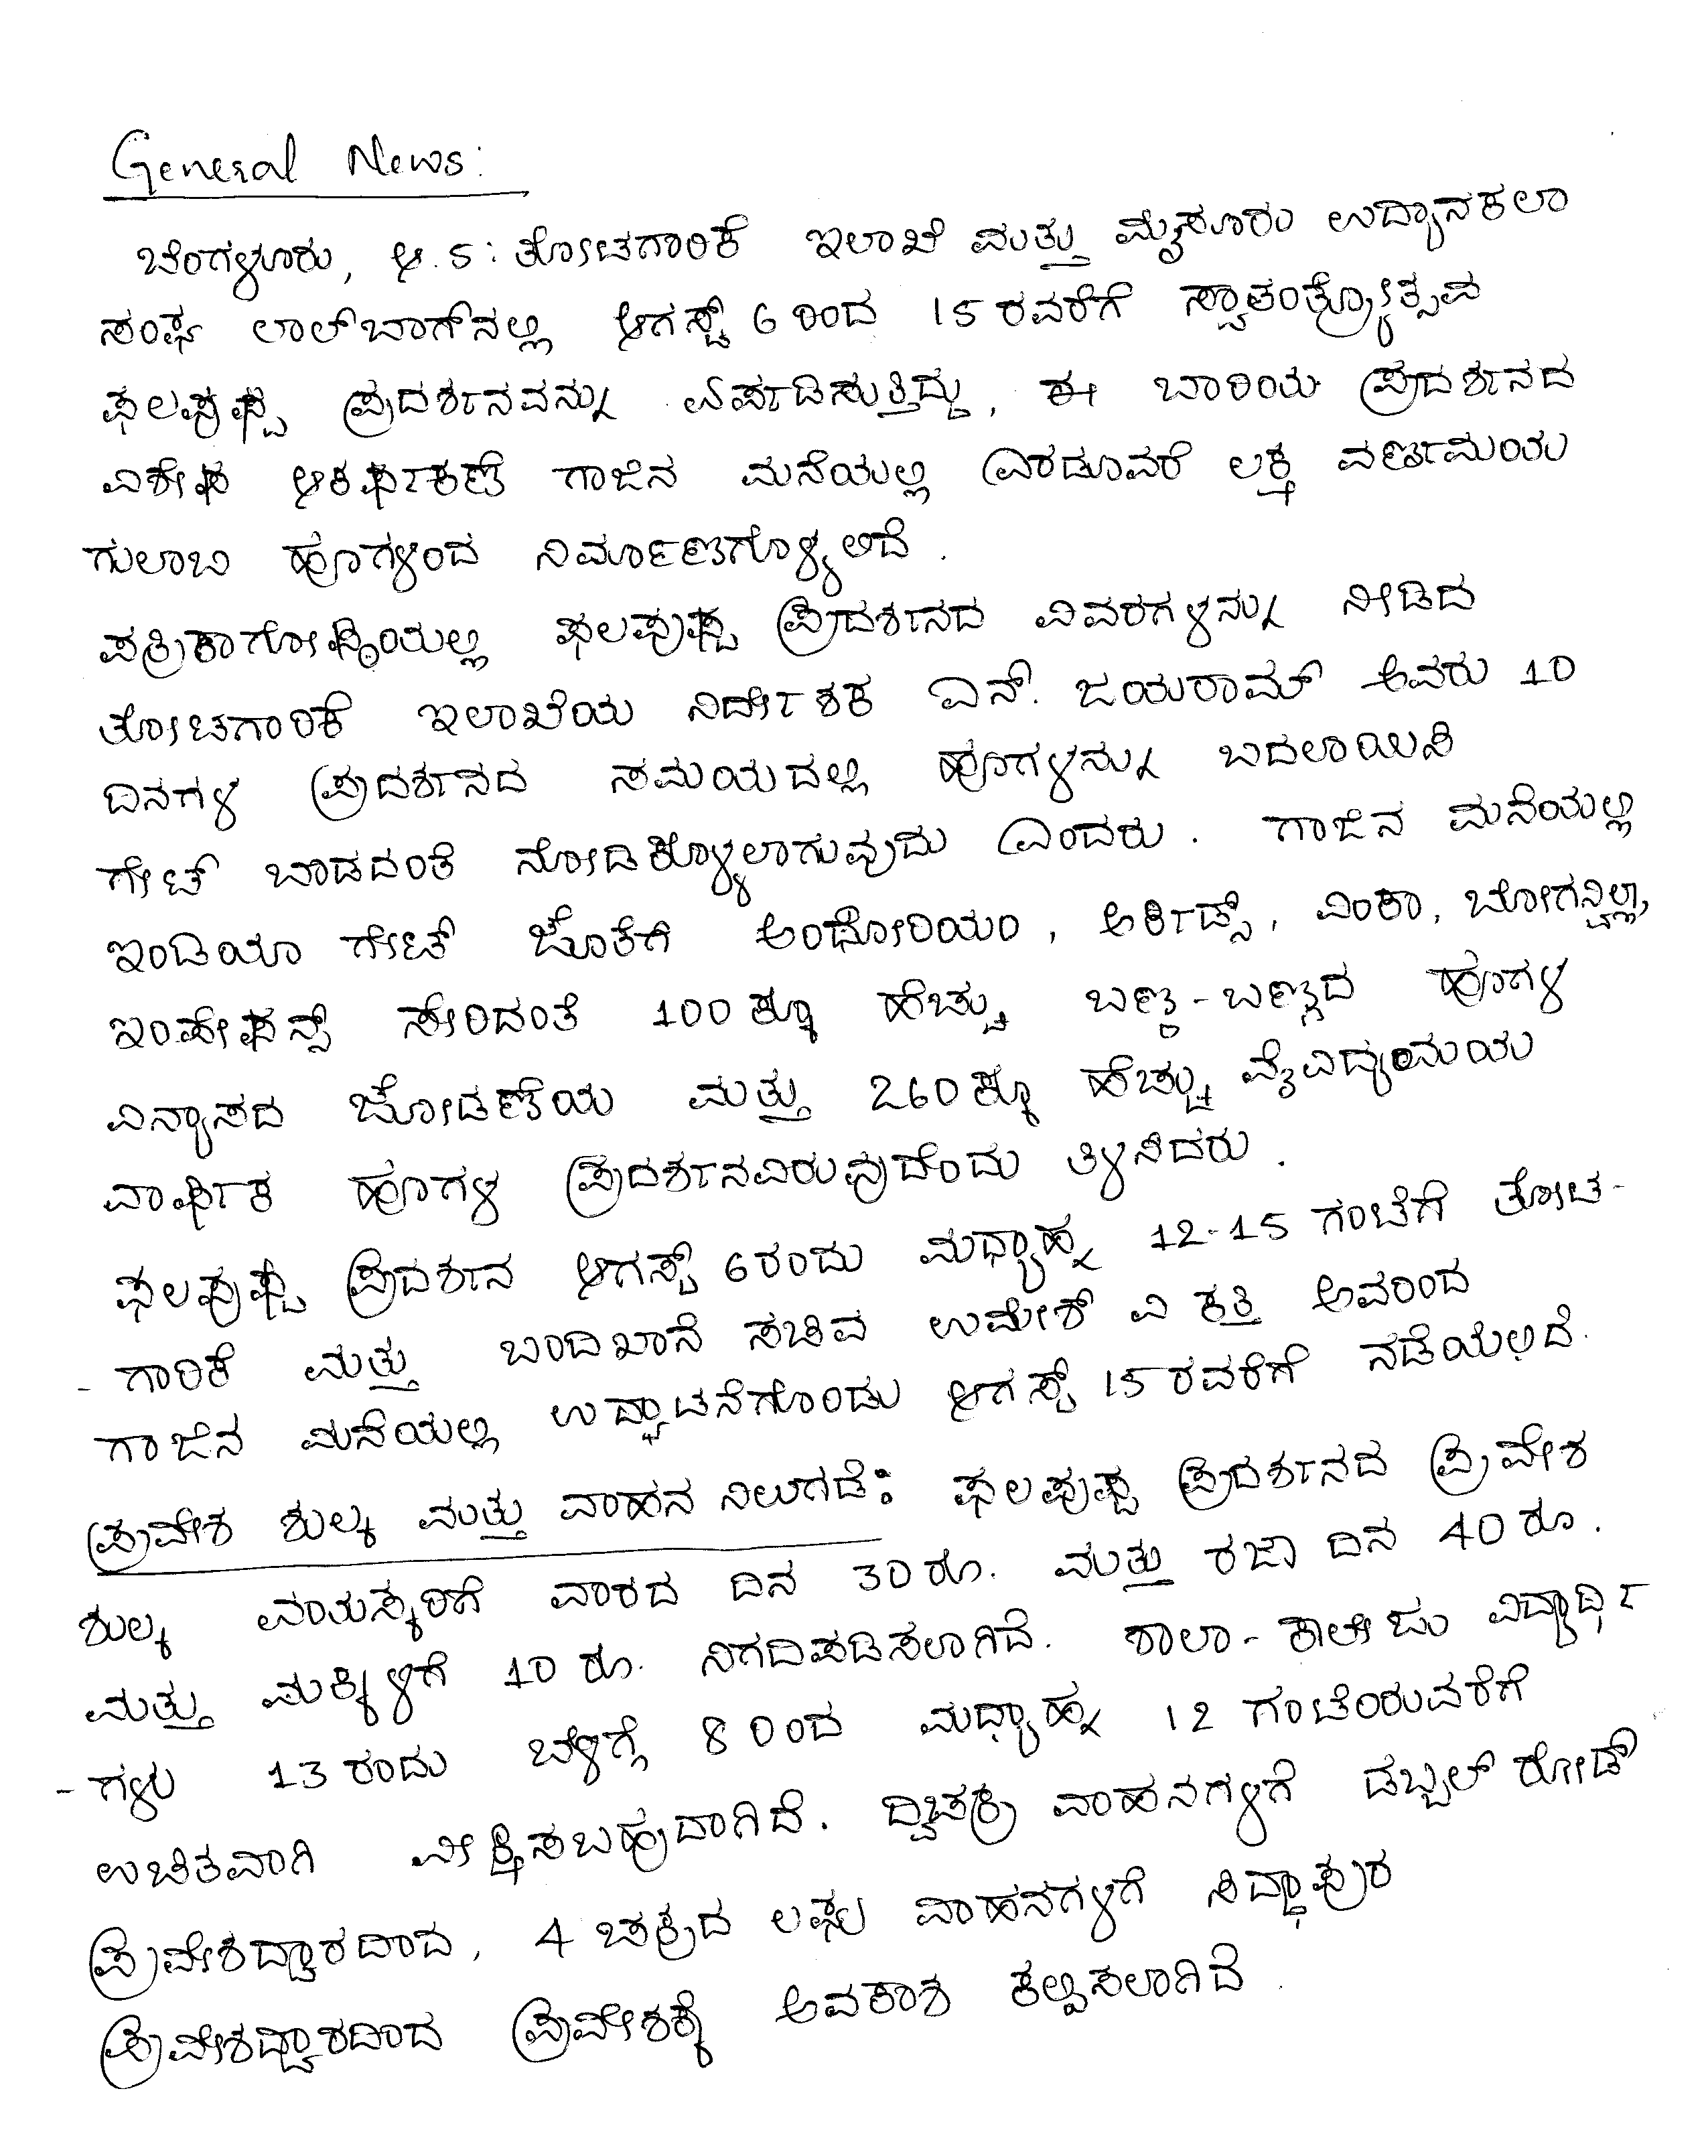 General News:
ಬೆಂಗಳೂರು, ಆ. 5: ತೋಟಗಾರಿಕೆ ಇಲಾಖೆ ಮತ್ತು ಮೈಸೂರು ಉದ್ಯಾನಕಲಾ
ಸಂಘ ಲಾಲ್‌ಬಾಗ್‌ನಲ್ಲಿ ಆಗಸ್ಟ್ 6 ರಿಂದ 15 ರವರೆಗೆ ಸ್ವಾತಂತ್ರ್ಯೋತ್ಸವ
ಫಲಪುಷ್ಪ ಪ್ರದರ್ಶನವನ್ನು ಏರ್ಪಡಿಸುತ್ತಿದ್ದು, ಈ ಬಾರಿಯ ಪ್ರದರ್ಶನದ
ವಿಶೇಷ ಆಕರ್ಷಕಣೆ ಗಾಜಿನ ಮನೆಯಲ್ಲಿ ಎರಡೂವರೆ ಲಕ್ಷ ವರ್ಣಮಯ
ಗುಲಾಬಿ ಹೂಗಳಿಂದ ನಿರ್ಮಾಣಗೊಳ್ಳಲಿದೆ.
ಪತ್ರಿಕಾಗೋಷ್ಠಿಯಲ್ಲಿ ಫಲಪುಷ್ಪ ಪ್ರದರ್ಶನದ ವಿವರಗಳನ್ನು ನೀಡಿದ
ತೋಟಗಾರಿಕೆ ಇಲಾಖೆಯ ನಿರ್ದೇಶಕ ಎನ್. ಜಯರಾಮ್ ಅವರು 10
ದಿನಗಳ ಪ್ರದರ್ಶನದ ಸಮಯದಲ್ಲಿ ಹೂಗಳನ್ನು ಬದಲಾಯಿಸಿ
ಗೇಟ್ ಬಾಡದಂತೆ ನೋಡಿಕೊಳ್ಳಲಾಗುವುದು ಎಂದರು. ಗಾಜಿನ ಮನೆಯಲ್ಲಿ
ಇಂಡಿಯಾ ಗೇಟ್ ಜೊತೆಗೆ ಅಂಥೋರಿಯಂ, ಆರ್ಕಿಡ್ಸ್, ವಿಂಕಾ, ಬೋಗನ್ವಿಲ್ಲಾ,
ಇಂಪೇಷನ್ಸ್ ಸೇರಿದಂತೆ 100ಕ್ಕೂ ಹೆಚ್ಚು ಬಣ್ಣ-ಬಣ್ಣದ ಹೂಗಳ
ವಿನ್ಯಾಸದ ಜೋಡಣೆಯ ಮತ್ತು 260ಕ್ಕೂ ಹೆಚ್ಚು ವೈವಿದ್ಯಮಯ
ವಾರ್ಷಿಕ ಹೂಗಳ ಪ್ರದರ್ಶನವಿರುವುದೆಂದು ತಿಳಿಸಿದರು.
ಫಲಪುಷ್ಪ ಪ್ರದರ್ಶನ ಆಗಸ್ಟ್ 6ರಂದು ಮಧ್ಯಾಹ್ನ 12-15 ಗಂಟೆಗೆ ತೋಟ-
- ಗಾರಿಕೆ ಮತ್ತು ಬಂದಿಖಾನೆ ಸಚಿವ ಉಮೇಶ್ ವಿ ಕತ್ತಿ ಅವರಿಂದ
ಗಾಜಿನ ಮನೆಯಲ್ಲಿ ಉದ್ಘಾಟನೆಗೊಂಡು ಆಗಸ್ಟ್ 15 ರವರೆಗೆ ನಡೆಯಲಿದೆ.
ಪ್ರವೇಶ ಶುಲ್ಕ ಮತ್ತು ವಾಹನ ನಿಲುಗಡೆ: ಫಲಪುಷ್ಪ ಪ್ರದರ್ಶನದ ಪ್ರವೇಶ
ಶುಲ್ಕ ವಯಸ್ಕರಿಗೆ ವಾರದ ದಿನ 30 ರೂ. ಮತ್ತು ರಜಾ ದಿನ 40 ರೂ.
ಮತ್ತು ಮಕ್ಕಳಿಗೆ 10 ರೂ. ನಿಗದಿಪಡಿಸಲಾಗಿದೆ. ಶಾಲಾ-ಕಾಲೇಜು ವಿದ್ಯಾರ್ಥಿ
- ಗಳು 13 ರಂದು ಬೆಳಿಗ್ಗೆ 8 ರಿಂದ ಮಧ್ಯಾಹ್ನ 12 ಗಂಟೆಯವರೆಗೆ
ಉಚಿತವಾಗಿ ವೀಕ್ಷಿಸಬಹುದಾಗಿದೆ. ದ್ವಿಚಕ್ರ ವಾಹನಗಳಿಗೆ ಡಬ್ಬಲ್ ರೋಡ್
ಪ್ರವೇಶದ್ವಾರದಿಂದ, 4 ಚಕ್ರದ ಲಘು ವಾಹನಗಳಿಗೆ ಸಿದ್ಧಾಪುರ
ಪ್ರವೇಶದ್ವಾರದಿಂದ ಪ್ರವೇಶಕ್ಕೆ ಅವಕಾಶ ಕಲ್ಪಿಸಲಾಗಿದೆ.